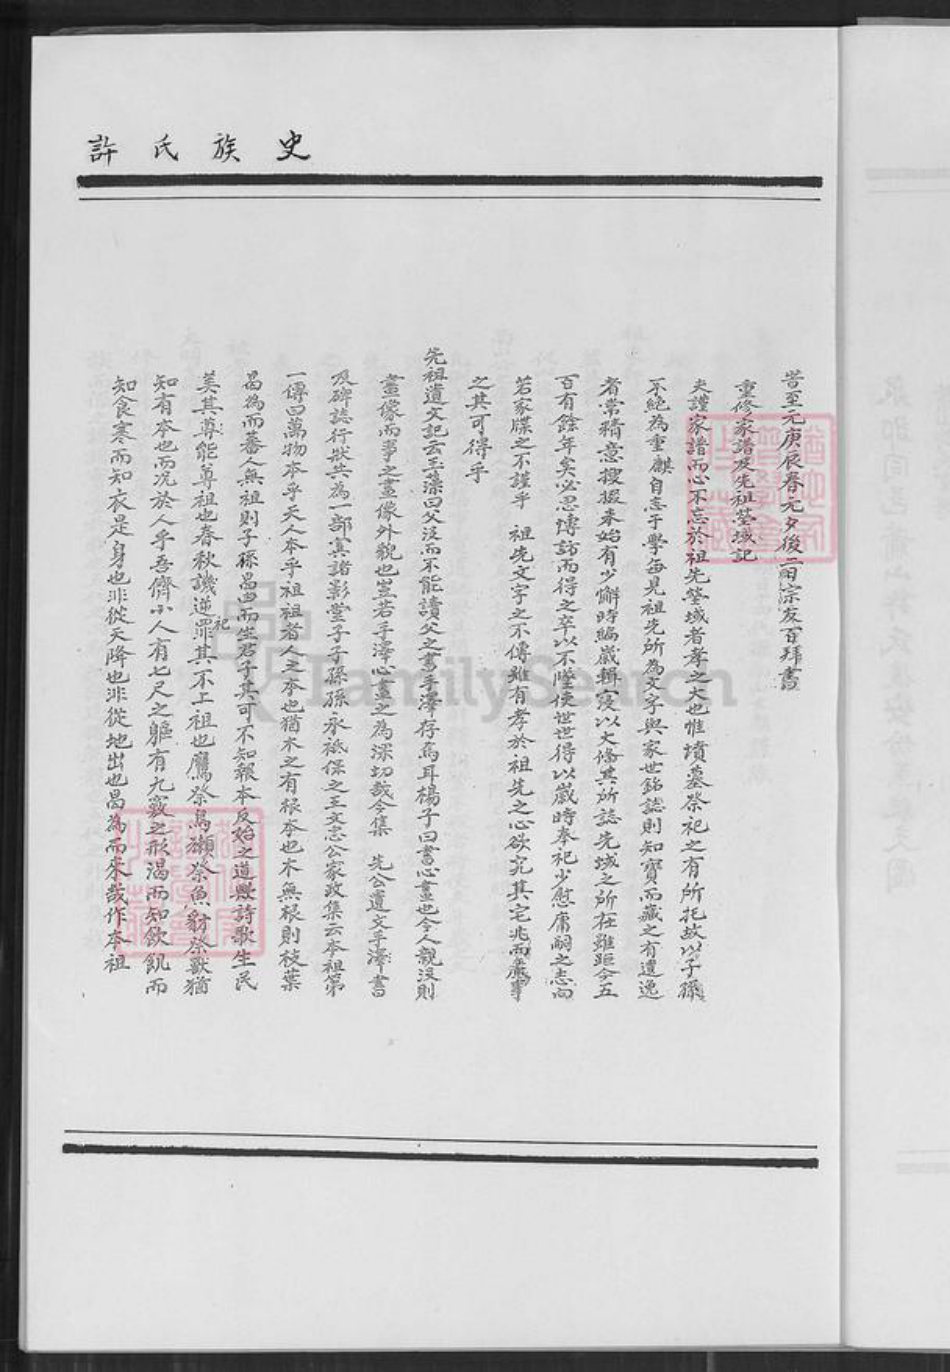 許氏族史
昔至元庚辰春元夕後二日宗友百拜書
重修家譜及先祖塋域記
夫謹家譜而心不忘於祖先塋域者孝之大也惟墳墓祭祀之有所托故以子孫
不絕為重麒自志于學每見祖先所為文字與家世銘誌則知寶而藏之有遺逸
者常精意搜掇未始有少懈時編歲輯寖以大備其所誌先域之所在雖距今五
百有餘年矣必思博訪而得之卒以不墜使世世得以歲時奉祀少慰庸嗣之志向
若家牒之不謹乎 祖先文字之不傳雖有孝於祖先之心欲究其宅兆而事
之其可得乎
先祖遺文記云玉藻曰父沒而不能讀父之書手澤存焉耳楊子曰書心畫也今人親沒則
畫像而事之畫像外貌也豈若手澤心畫之為深切哉今集 先公遺文手澤書
及碑誌行狀共為一部寘諸影堂子子孫孫永祗保之王文忠公家政集云本祖第
一傳曰萬物本乎天人本乎祖祖者人之本也猶木之有根本也木無根則枝葉
曷為而蕃人無祖則子孫曷由而生君子其可不知報本反始之道歟詩歌生民
美其尊能尊祖也春秋譏逆祀罪其不上祖也鷹祭鳥獺祭魚豺祭獸猶
知有本也而況於人乎吾儕小人有七尺之軀有九竅之形渴而知飲飢而
知食寒而知衣是身也非從天降也非從地出也曷為而來哉作本祖
FamilySearch